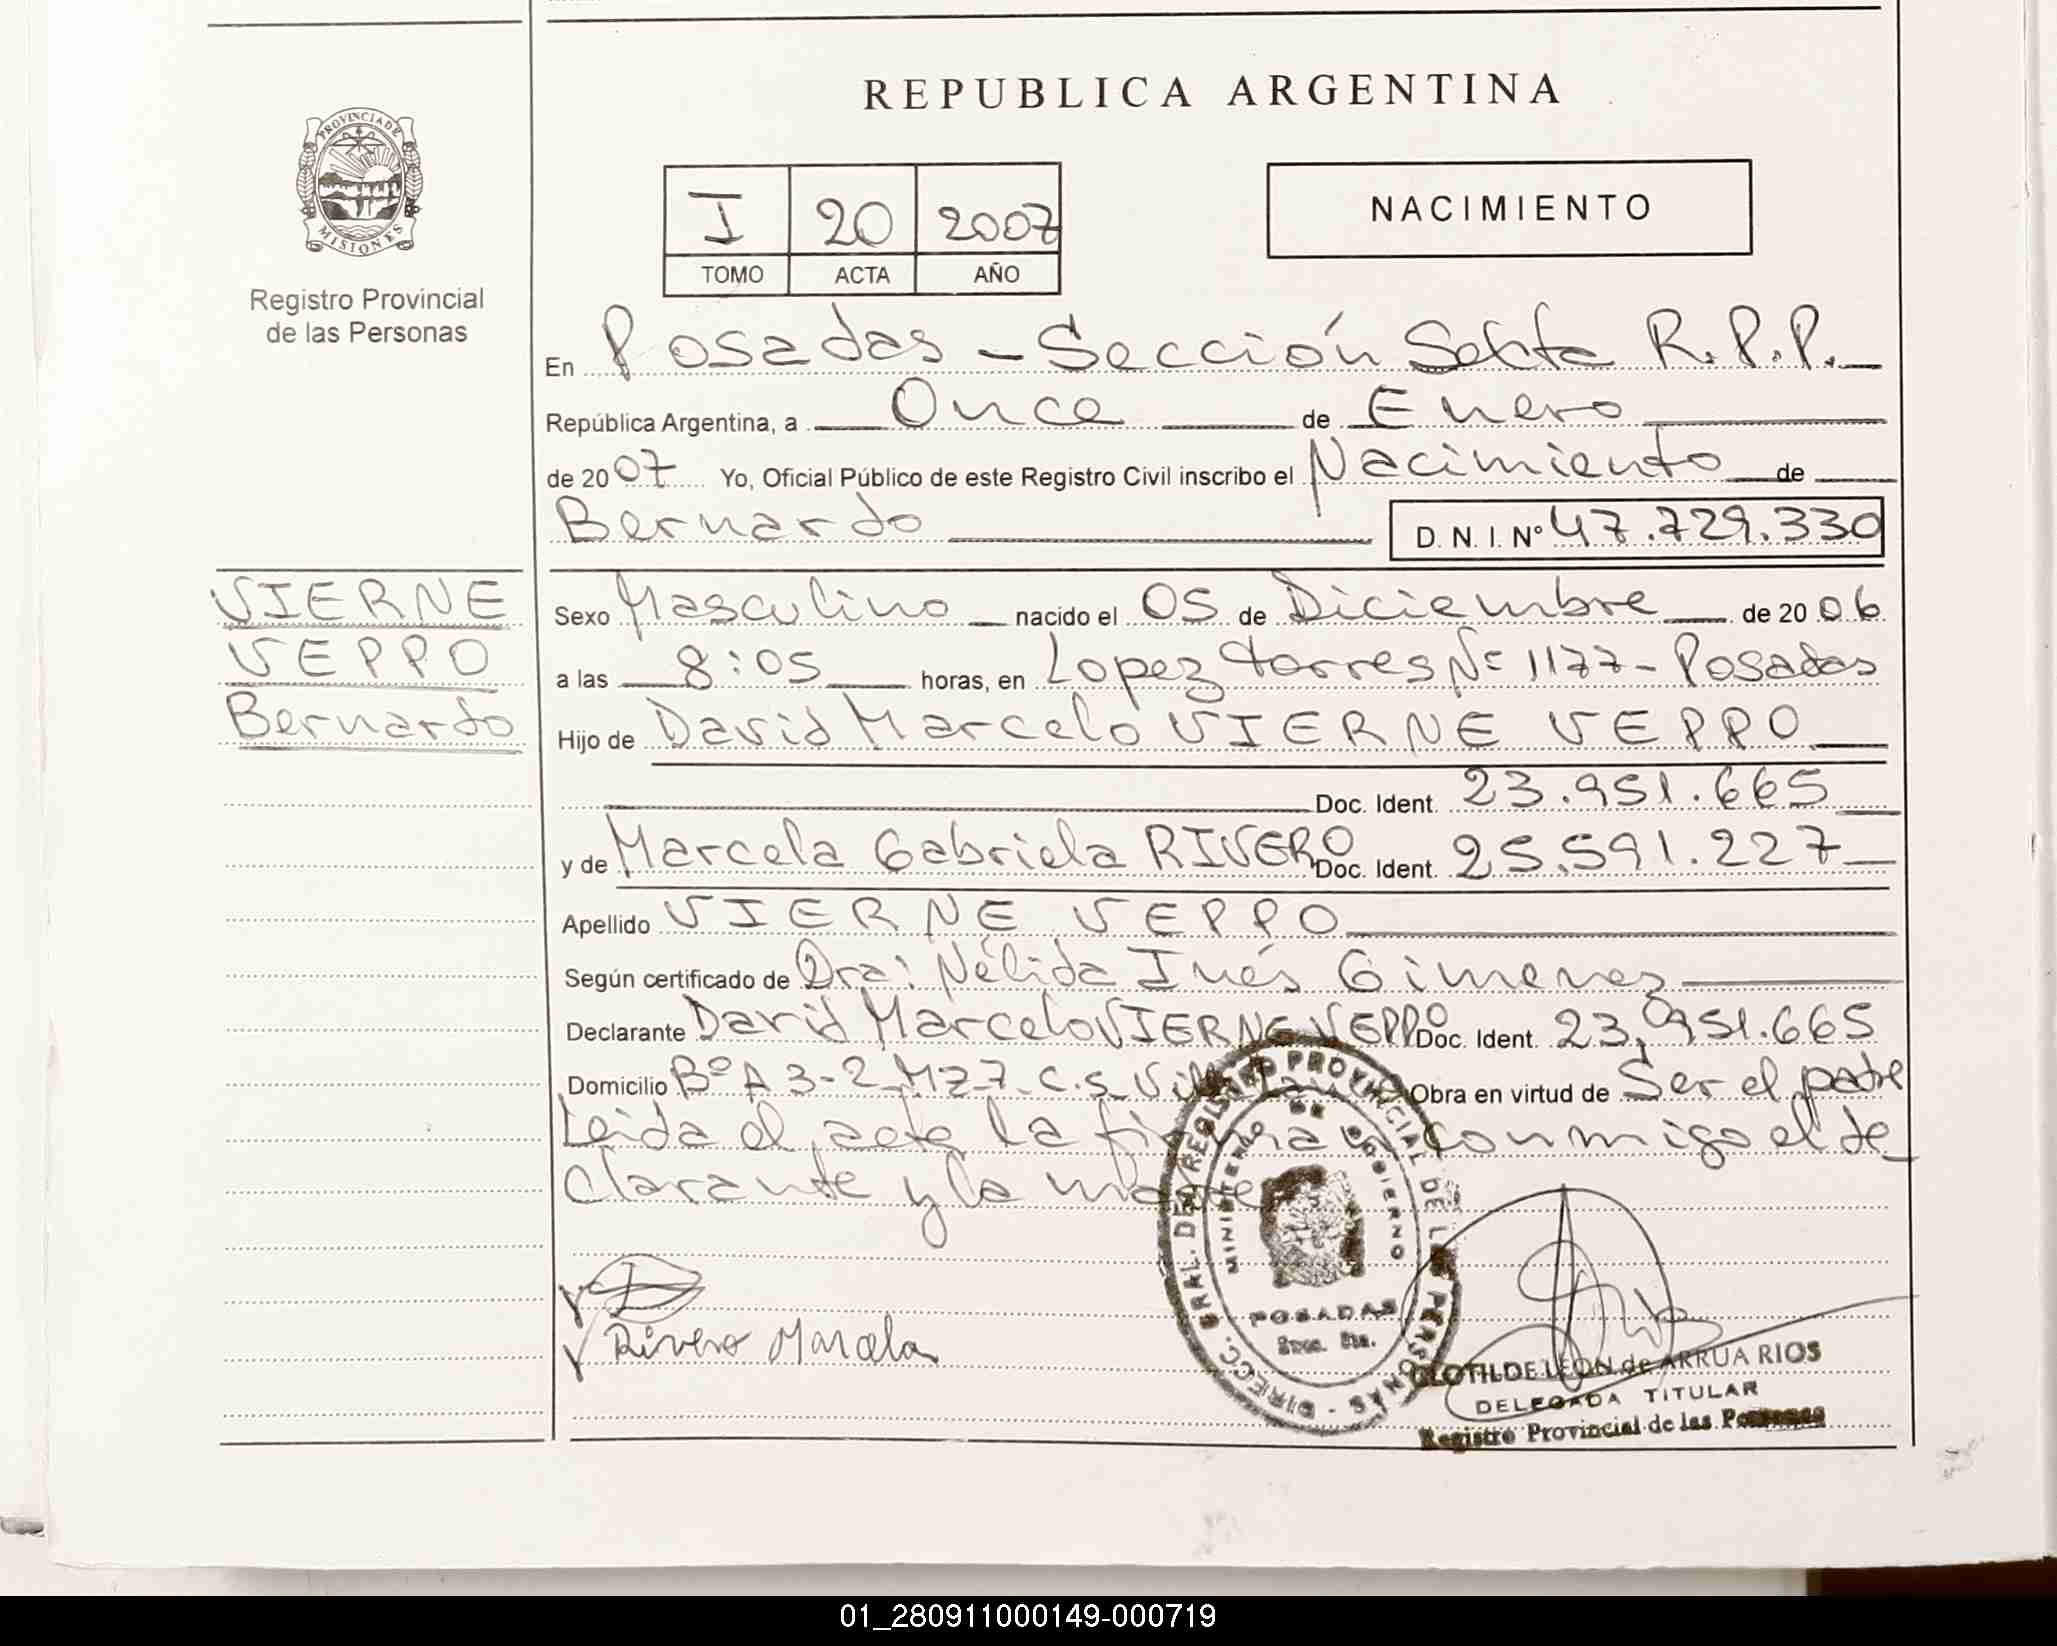 REPUBLICA ARGENTINA
PROVINCIA DE
MISIONES
Registro Provincial
de las Personas
I 20 2007
TOMO ACTA AÑO
NACIMIENTO
En Posadas - Sección Sexta R.P.P.
República Argentina, a Once de Enero
de 2007 Yo, Oficial Público de este Registro Civil inscribo el Nacimiento de
Bernardo D. N. I. Nº 47.729.330
VIERNE
VEPPO
Bernardo
Sexo Masculino nacido el 05 de Diciembre de 2006
a las 8:05 horas, en Lopez torres Nº 1177 - Posadas
Hijo de David Marcelo VIERNE VEPPO
Doc. Ident. 23.951.665
y de Marcela Gabriela RIVERO Doc. Ident. 25.591.227
Apellido VIERNE VEPPO
Según certificado de Dra: Nélida Inés Gimenez
Declarante David Marcelo VIERNE VEPPO Doc. Ident. 23.951.665
Domicilio Bº A 3-2 Mz 7 C.S. Obra en virtud de Ser el padre
Leida el acta la firman conmigo el de
clarante y la madre
Rivero Marcela
DIRECC. GRAL. DEL REGISTRO PROVINCIAL DE LAS PERSONAS
MINISTERIO DE GOBIERNO
POSADAS
Secc. 6ta.
CLOTILDE LEON de ARRUA RIOS
DELEGADA TITULAR
Registro Provincial de las Personas
01_280911000149-000719